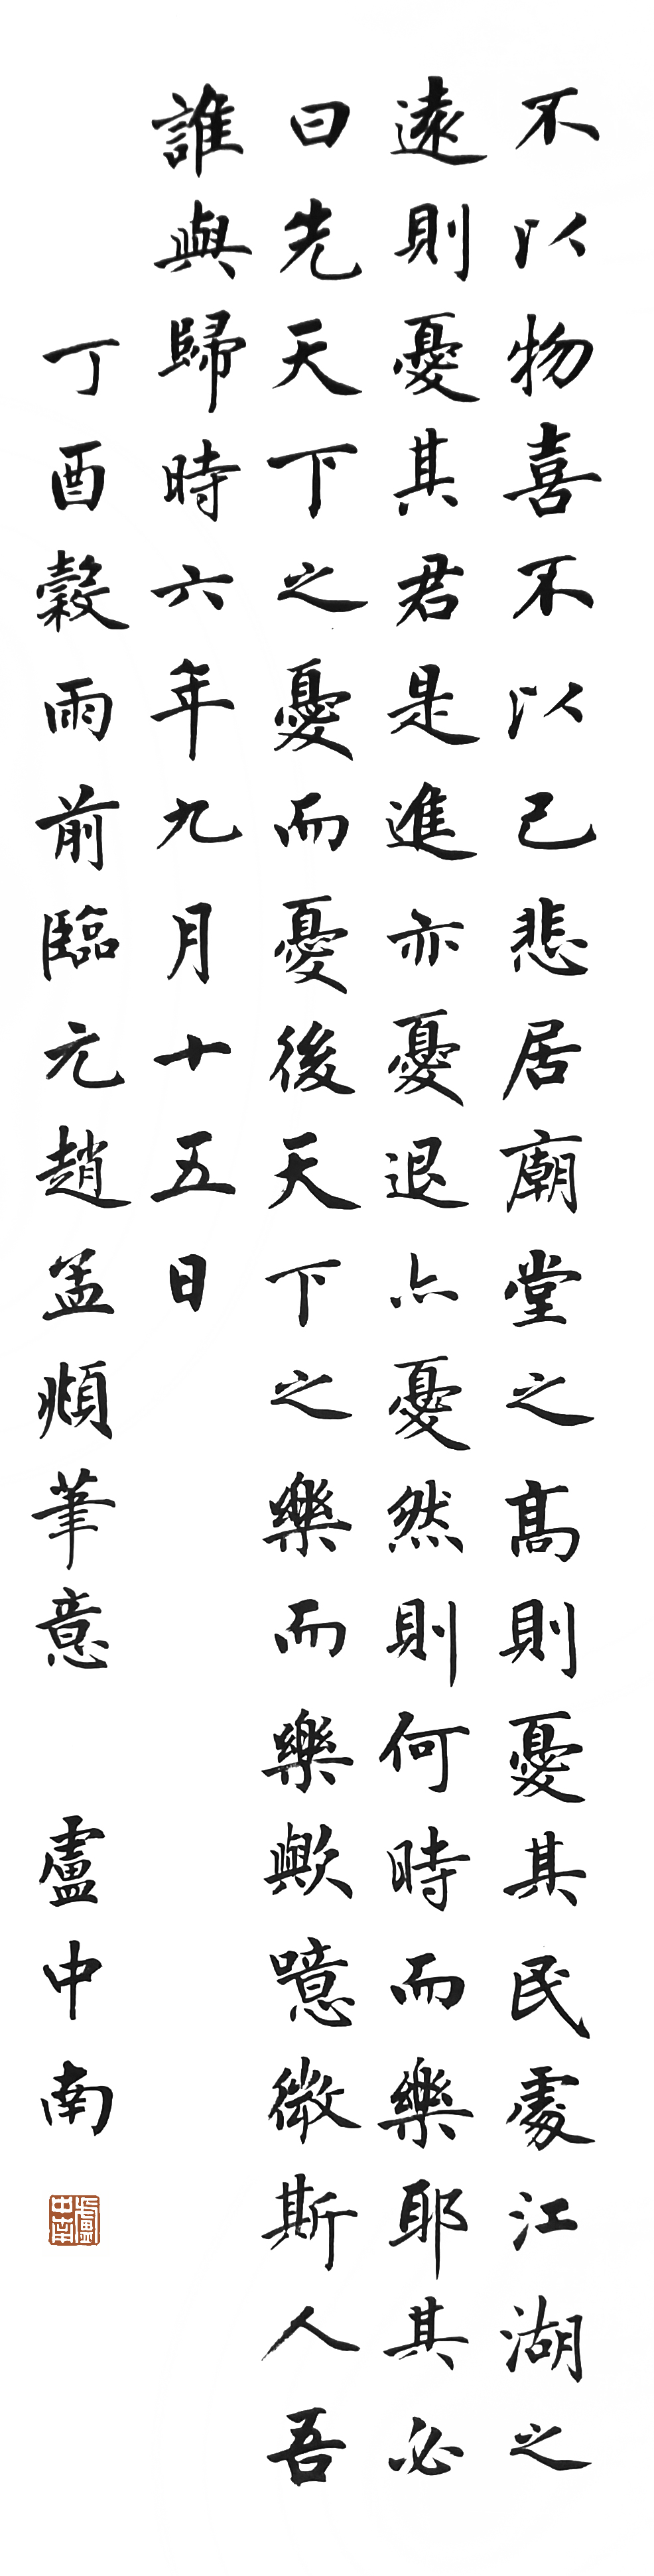 不以物喜不以己悲居廟堂之髙則憂其民處江湖之
遠則憂其君是進亦憂退亦憂然則何時而樂耶其必
曰先天下之憂而憂後天下之樂而樂歟噫微斯人吾
誰與歸時六年九月十五日
丁酉穀雨前臨元趙孟頫筆意 盧中南
盧中南